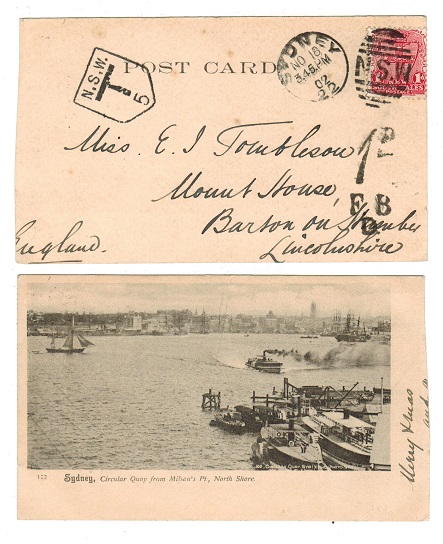 N.S.W.
T 5
POST CARD
SYDNEY
NO 18
3.45 PM
02
22
N.S.W.
1D
F.B
Miss. E. J Tombleson
Mount House,
Barton on Humber
Lincolnshire
England.
Merry Xmas
and
122 Sydney, Circular Quay from Milson's Pt, North Shore.